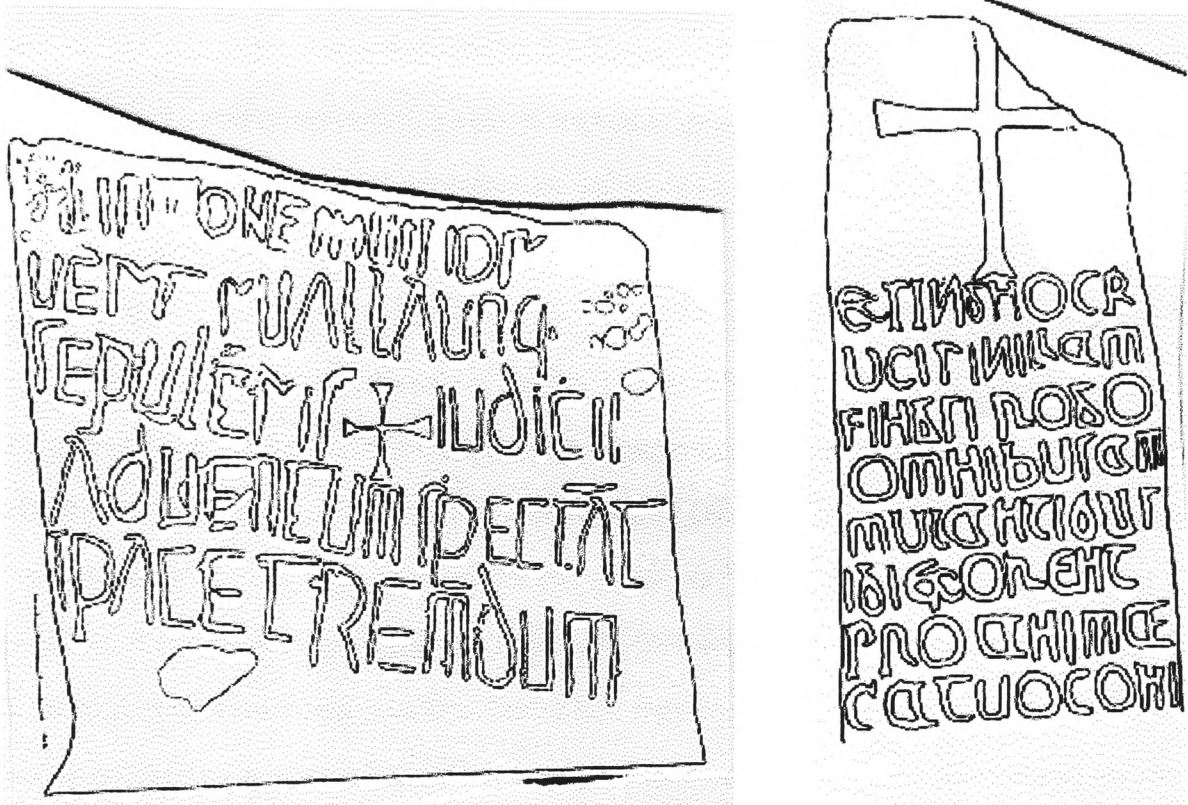 SINDONE MUTI IOR
UERT RUALLAUNQ
SEPULCRIS + IUDICII
ADUENTUM SPECTAT
IPACE TREMDUM
ET SINGNO CR
UCIS IN ILLAM
FINGSI ROGO
OMNIBUS AM
MULANTIBUS
IBI EXORENT
PRO ANIMAE
CATUOCONI